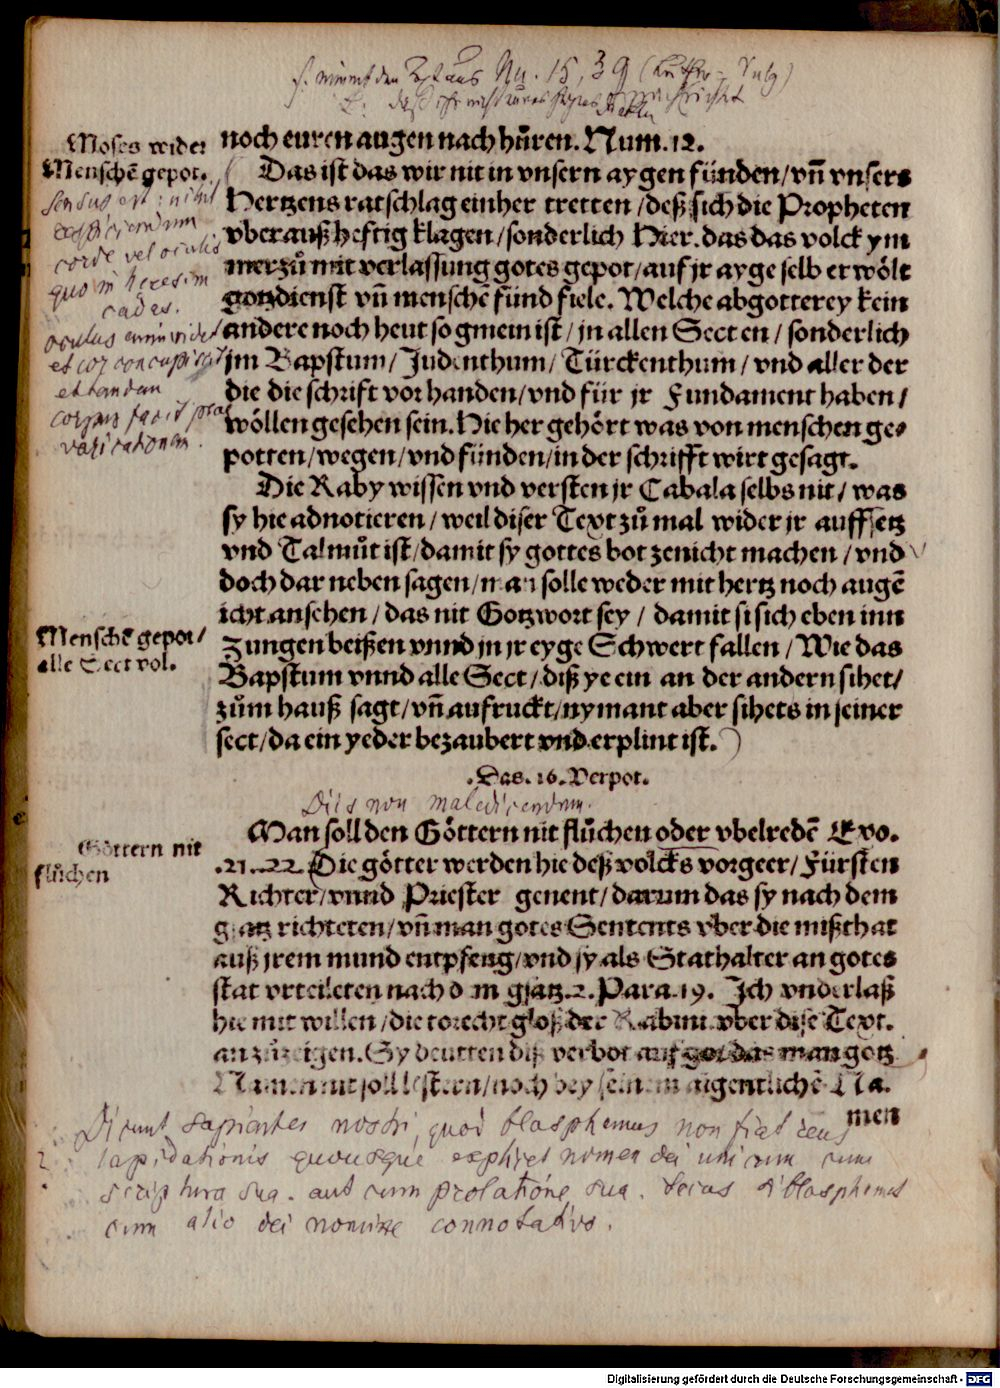 Nu. 15, 39
noch euren augen nach hůren. Num. 12.
Moses wider
Menschē gepot.
Das ist das wir nit in vnsern aygen fünden/vn̄ vnsers
Hertzens ratschlag einher tretten/deß sich die Propheten
vberauß hefftig klagen/sonderlich Hier. das das volck ym
merzů mit verlassung gotes gepot/auf jr ayge selb erwölt
gotzdienst vn̄ menschē fünd fiele. Welche abgotterey kein
andere noch heut so gmein ist/in allen Secten/sonderlich
jm Bapstum/Judenthum/Türckenthum/vnd aller der
die die schrift vorhanden/vnd für jr Fundament haben/
wöllen gesehen sein. Hieher gehört was von menschen ge⸗
potten/wegen/vnd fünden/in der schrifft wirt gesagt.
sensus est: nihil
corde vel oculis
quo in heresim
cadas.
oculus enim videt
et cor concupiscit
et tandem
corpus facit prae
varicationem.
Die Raby wissen vnd versten jr Cabala selbs nit/was
sy hie adnotieren/weil diser Text zů mal wider jr auffsetz
vnd Talmůt ist/damit sy gottes bot zenicht machen/vnd
doch darneben sagen/man solle weder mit hertz noch augē
icht ansehen/das nit Gotzwort sey/damit si sich eben inn
Zungen beißen vnnd jn jr eyge Schwert fallen/Wie das
Bapstum vnnd alle Sect/diß ye ein an der andern sihet/
zům hauß sagt/vn̄ aufruckt/nymant aber sihets in seiner
sect/da ein yeder bezaubert vnd erplint ist.
Menschē gepot/
alle Sect vol.
.Das. 16. Verpot.
Diis non maledicendum.
Man soll den Göttern nit flůchen oder vbelredē Exo.
.21..22. Die götter werden hie deß volcks vorgeer/Fürsten
Richter/vnnd Priester genent/darum das sy nach dem
gsatz richteten/vn̄ man gotes Sentents vber die mißthat
auß jrem mund entpfeng/vnd sy als Stathalter an gotes
stat vrteileten nach dem gsatz.2. Para.19. Ich vnderlaß
hie mit willen/die torecht gloß der Rabini vber dise Text.
anzůzeigen. Sy deutten diß verbot auf got das man gotz
Namen nit soll lestern/noch bey seinem aigentlichē Na.
men
Göttern nit
flůchen
Dicunt sapientes nostri, quod blasphemus non fiat reus
lapidationis quousque explicet nomen dei unicum cum
scriptura sua. aut cum prolatione sua. secus si blasphemet
cum alio dei nomine connotativo.
Digitalisierung gefördert durch die Deutsche Forschungsgemeinschaft - DFG